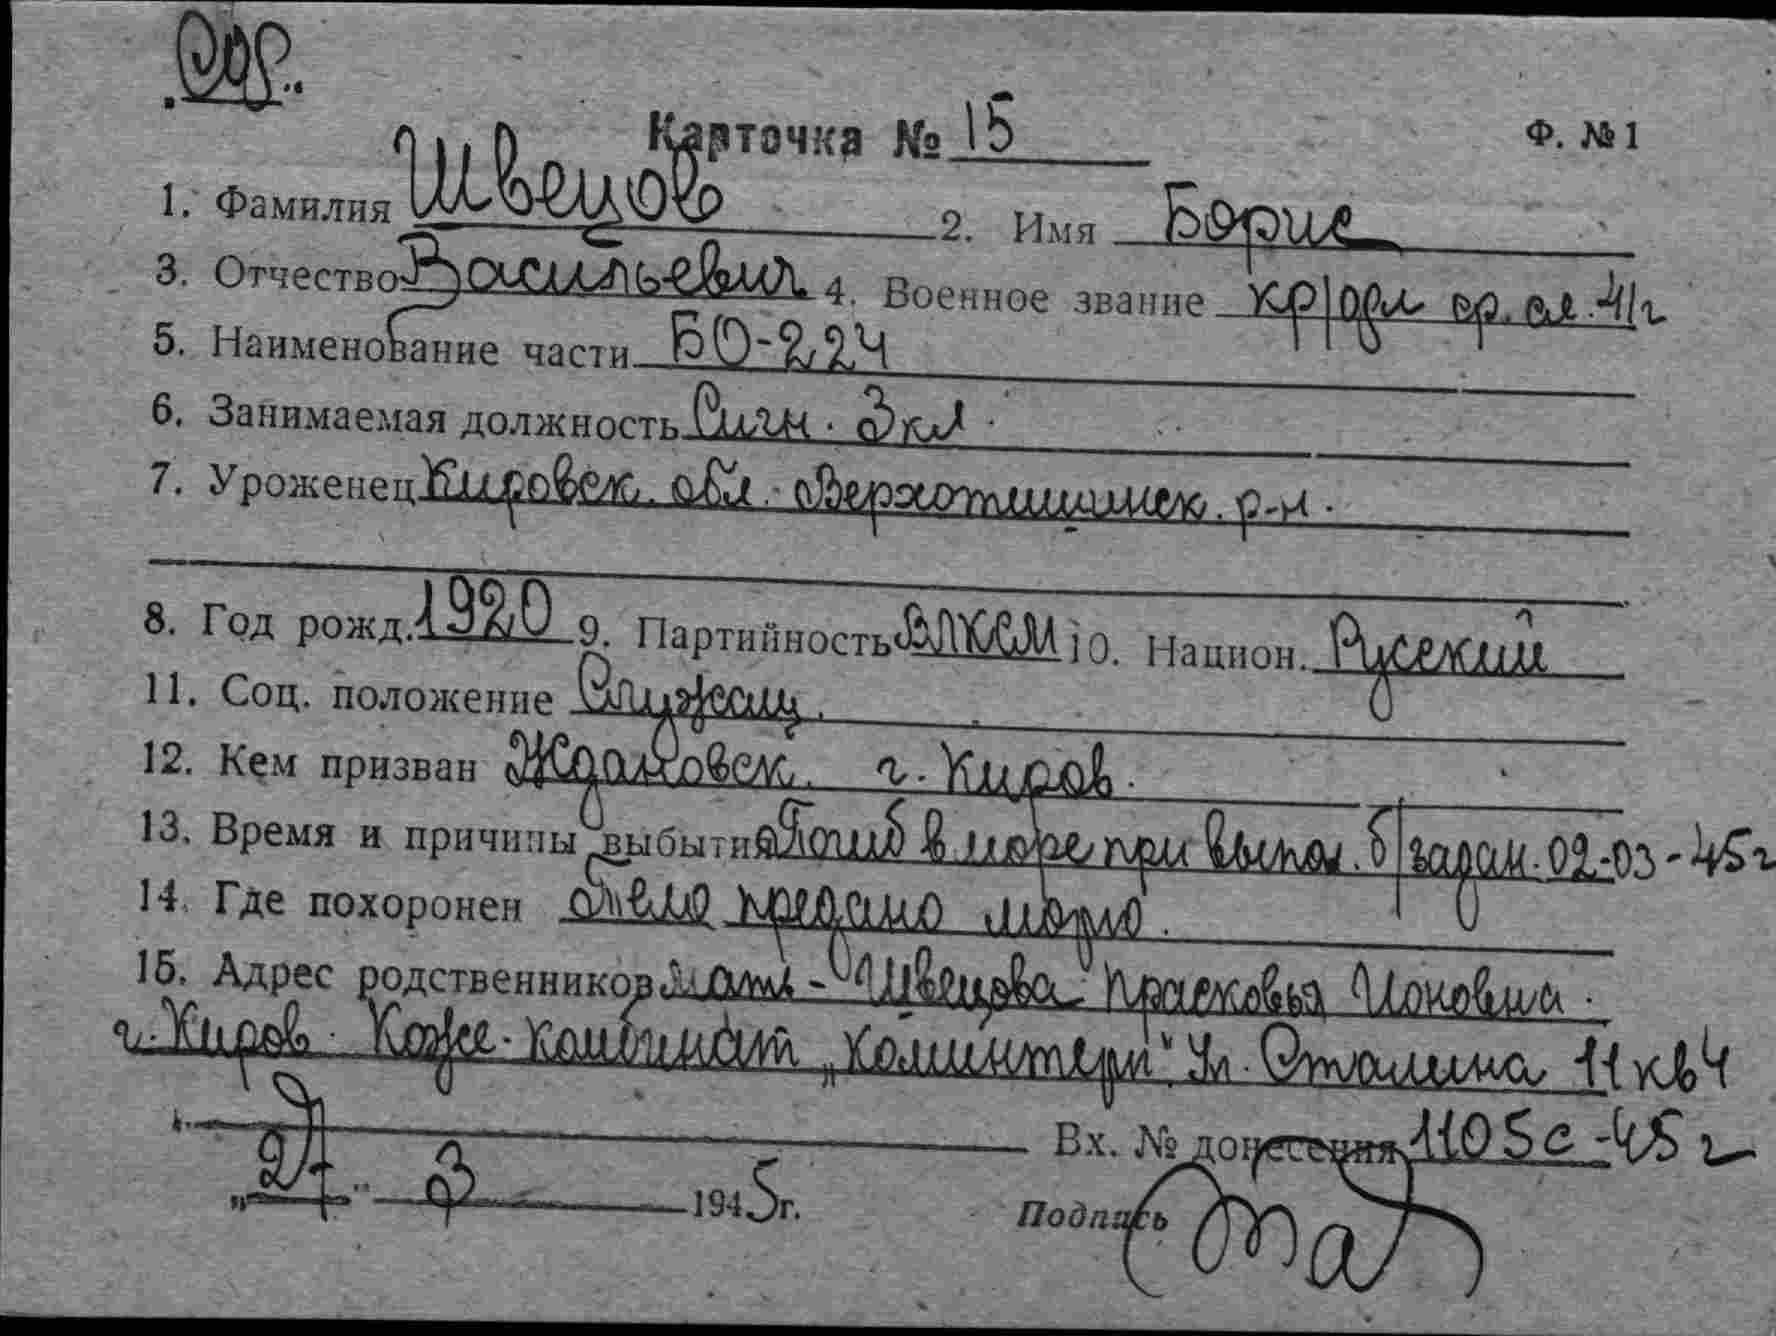 Карточка № 15 Ф. № 1
1. Фамилия Швецов 2. Имя Борис
3. Отчество Васильевич 4. Военное звание кр/фл ср. сл. 41г
5. Наименование части БО-224
6. Занимаемая должность Сигн. 3 кл.
7. Уроженец Кировск. обл. Верхотишимск. р-н.
8. Год рожд. 1920 9. Партийность ВЛКСМ 10. Национ. Русский
11. Соц. положение Служащ.
12. Кем призван Ждановск. г. Киров.
13. Время и причины выбытия Погиб в море при выпол. б/задан. 02-03-45г
14. Где похоронен Тело предано морю.
15. Адрес родственников мать - Швецова Прасковья Ионовна.
г. Киров. Коже-комбинат „Коминтерн". Ул. Сталина 11 кв 4
Вх. № донесения 1105с-45г
„27" 3 1945г. Подпись